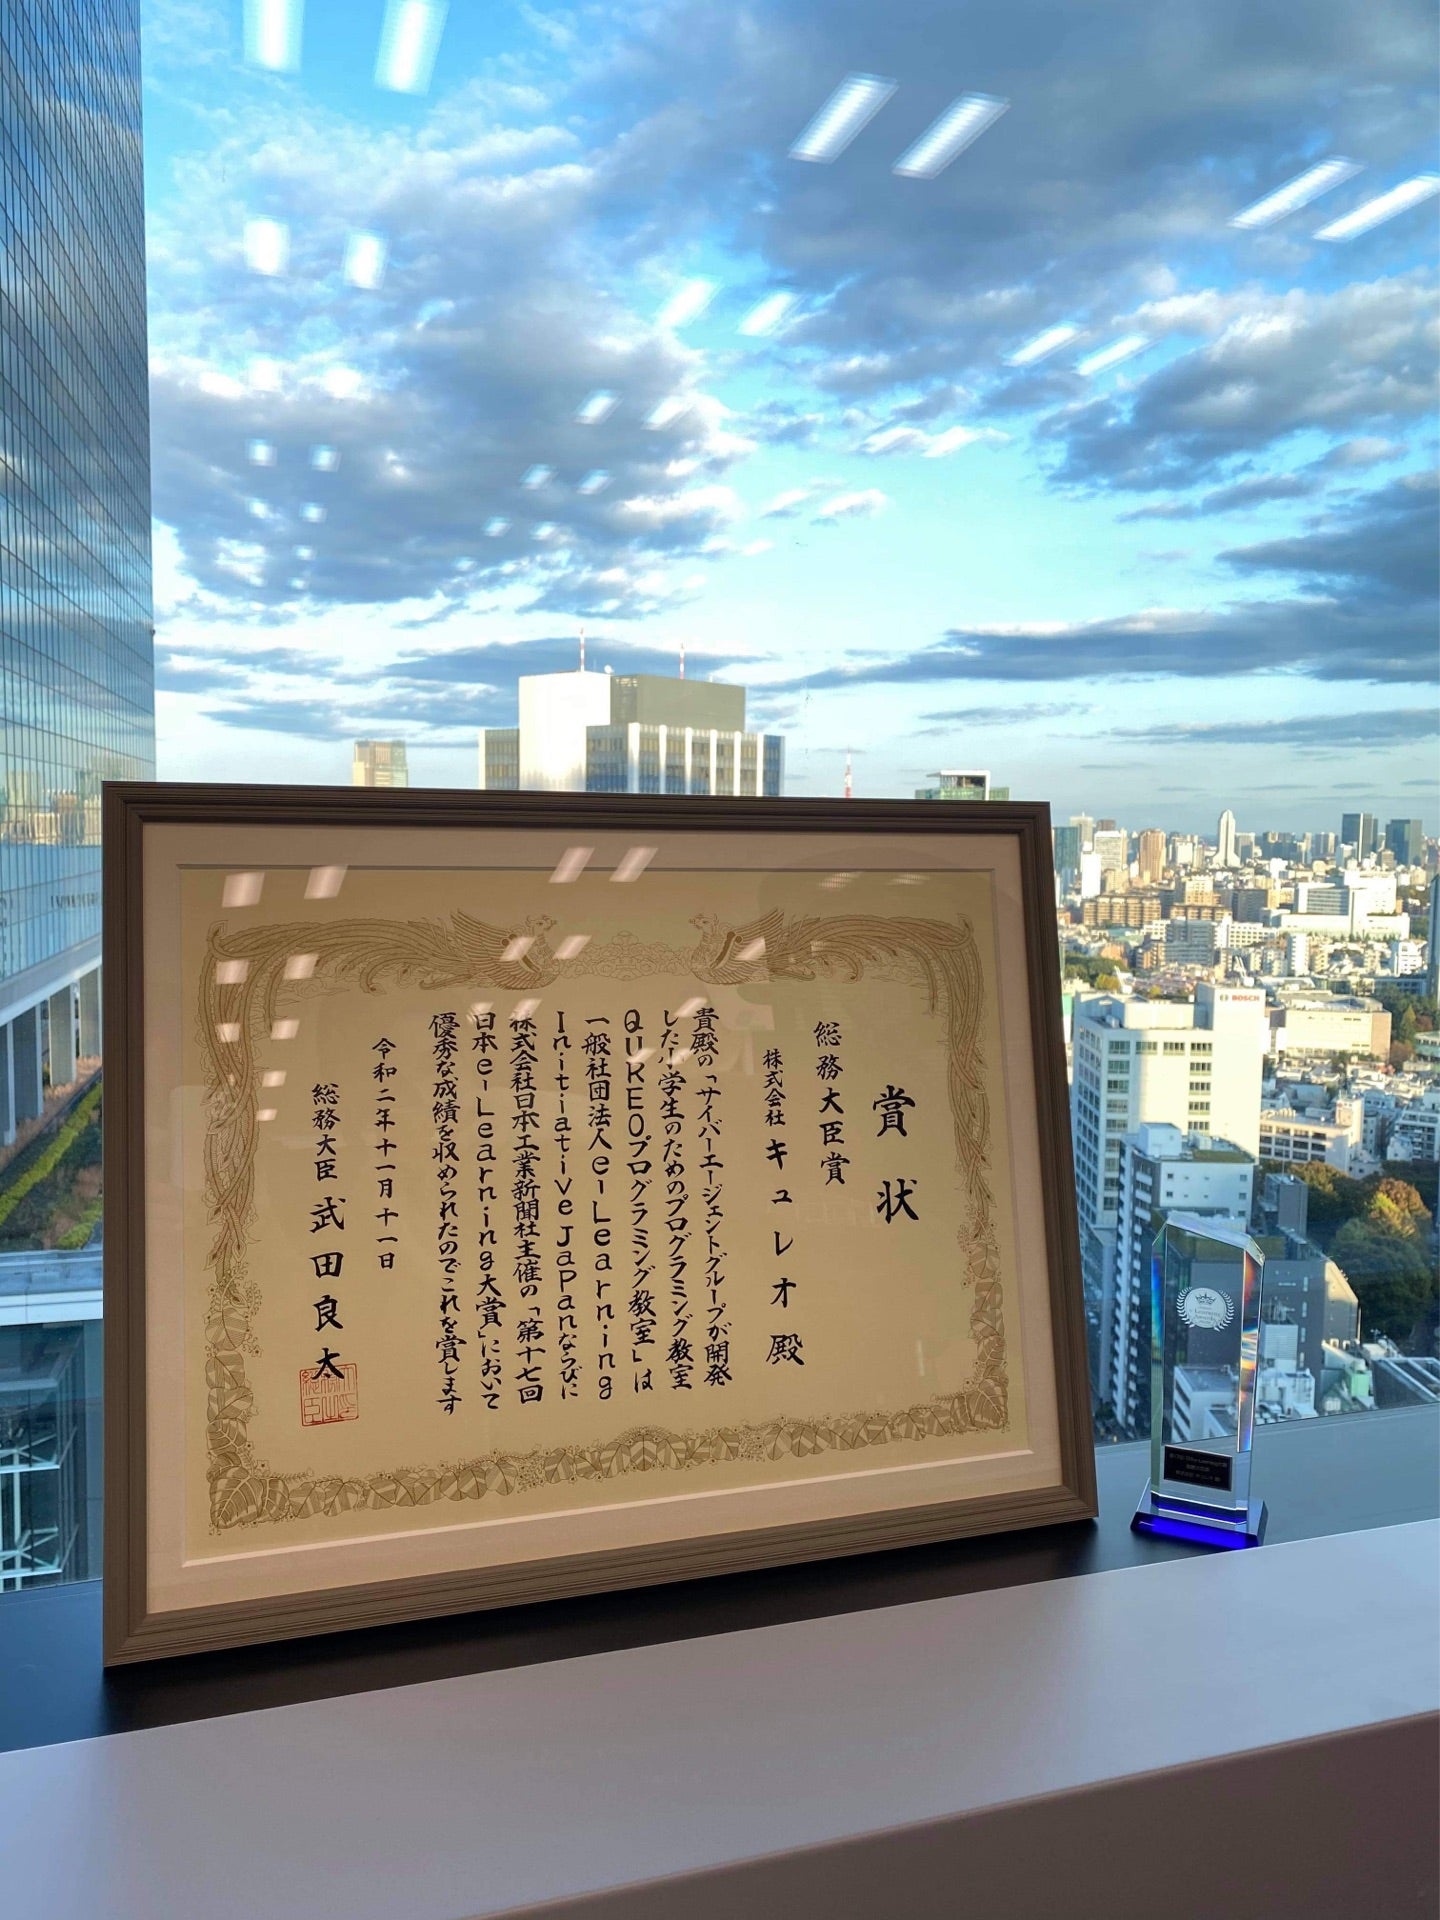 賞状
総務大臣賞
株式会社キュレオ殿
貴殿の「サイバーエージェントグループが開発
した小学生のためのプログラミング教室
QUREOプログラミング教室」は
一般社団法人e-Learning
Initiative Japanならびに
株式会社日本工業新聞社主催の「第十七回
日本e-Learning大賞」において
優秀な成績を収められたのでこれを賞します
令和二年十一月十一日
総務大臣 武田良太
BOSCH